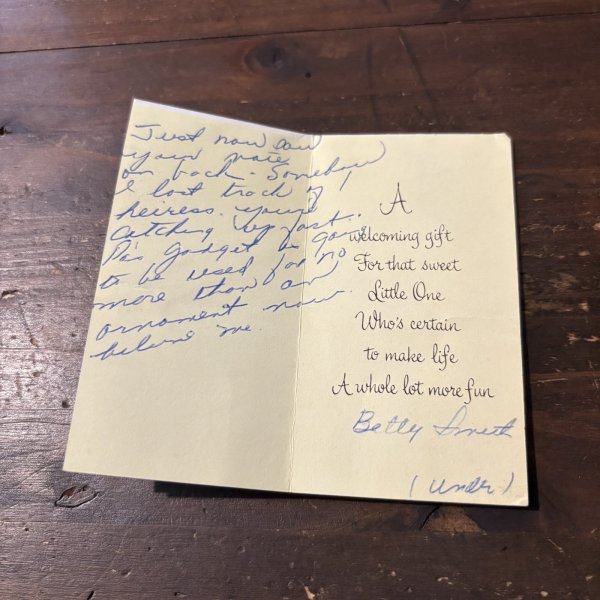 Just now saw
your note
on back. Somehow
I lost track of 1
heiress. You're
catching up fast.
Pa's gadget is going
to be used for no
more than an
ornament now
believe me.
A
welcoming gift
For that sweet
Little One
Who's certain
to make life
A whole lot more fun
Betty Smith
(under)